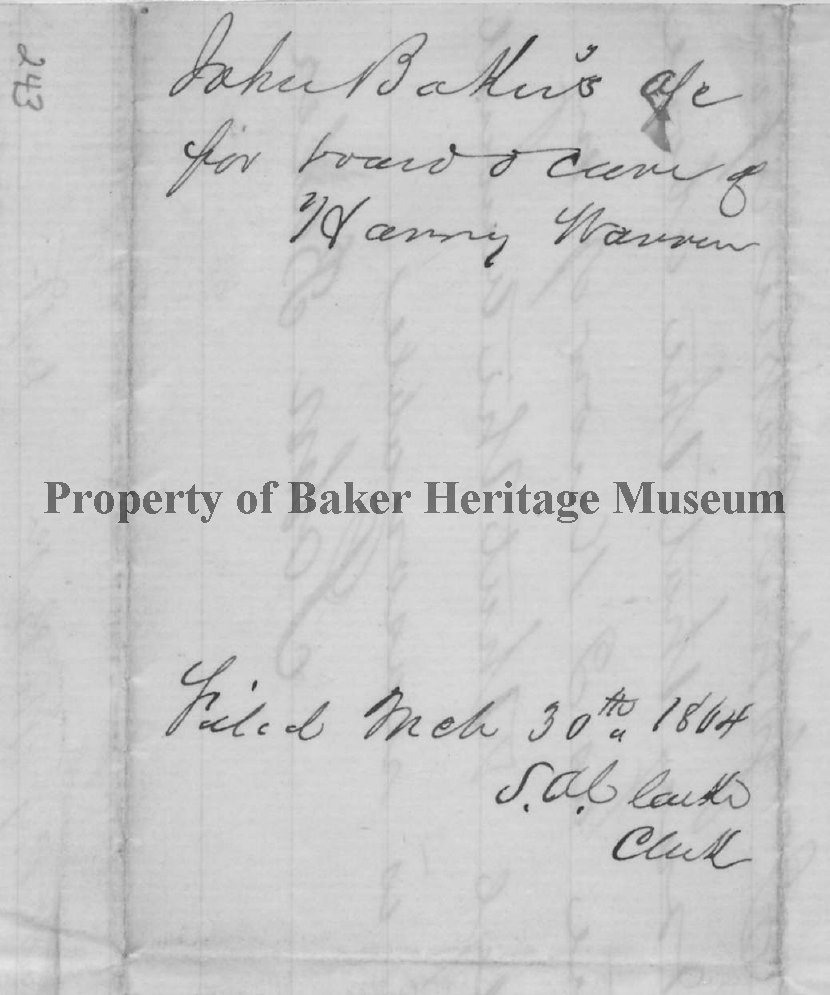 243
John Baker's a/c
for board & care of
Harry Warren
Property of Baker Heritage Museum
Filed Mch 30th 1864
S. A. Clarke
Clerk